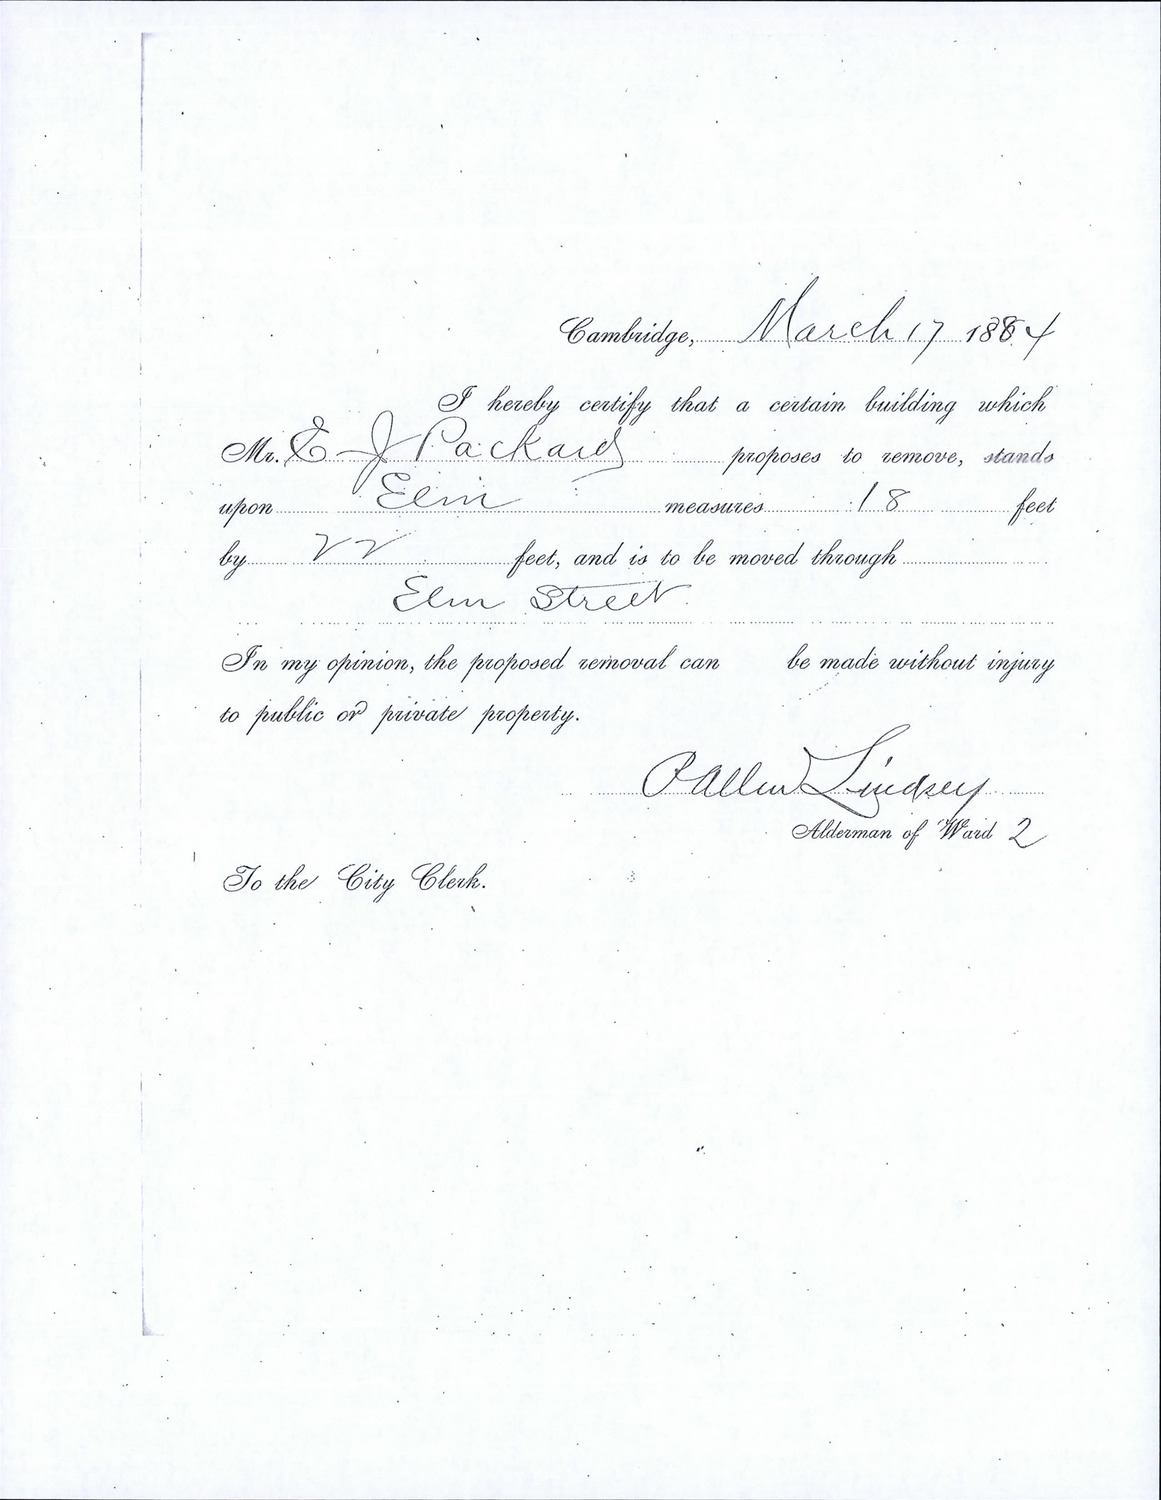 Cambridge, March 17 1884
I hereby certify that a certain building which
Mr. E J Packard proposes to remove, stands
upon Elm measures 18 feet
by 22 feet, and is to be moved through
Elm Street
In my opinion, the proposed removal can be made without injury
to public or private property.
P Allen Lindsey
Alderman of Ward 2
To the City Clerk.